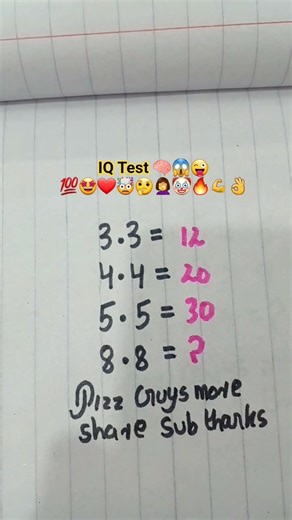 IQ Test 🧠😱😜
💯😍❤️🤯🤔🤦‍♀️🤡🔥💪👌
3.3 = 12
4.4 = 20
5.5 = 30
8.8 = ?
Plzz Guys more
share Sub thanks